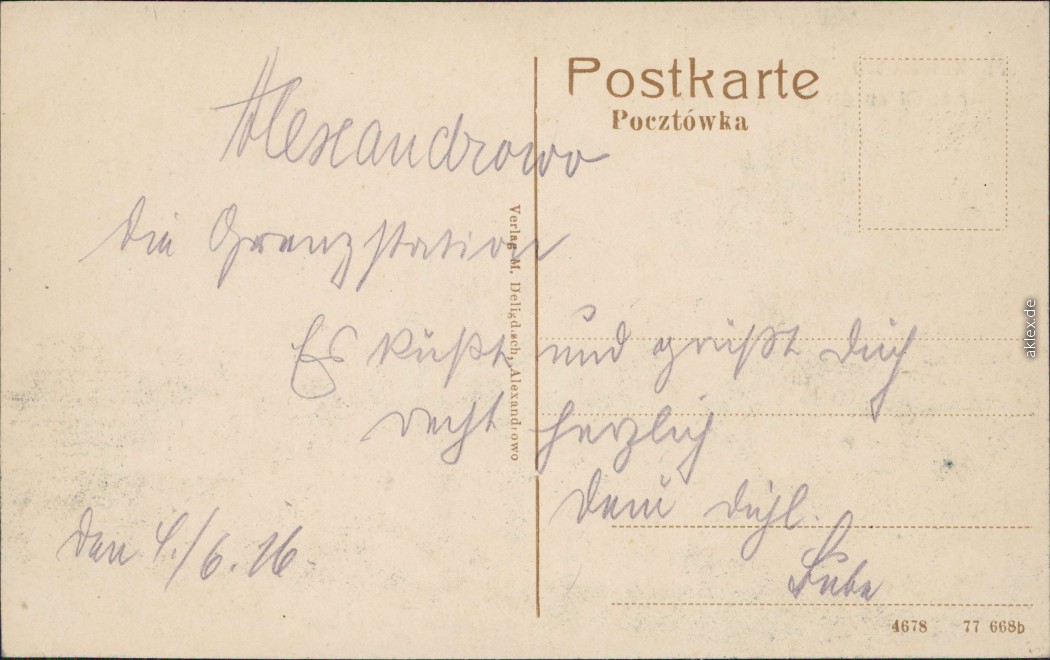 Postkarte
Pocztówka
Alexandrowo
die Grenzstation
Es küßt und grüßt Dich
recht herzlich
Dein
den 4./6.16
Verlag M. Deligdisch, Alexandrowo
4678 77 668b
aklex.de